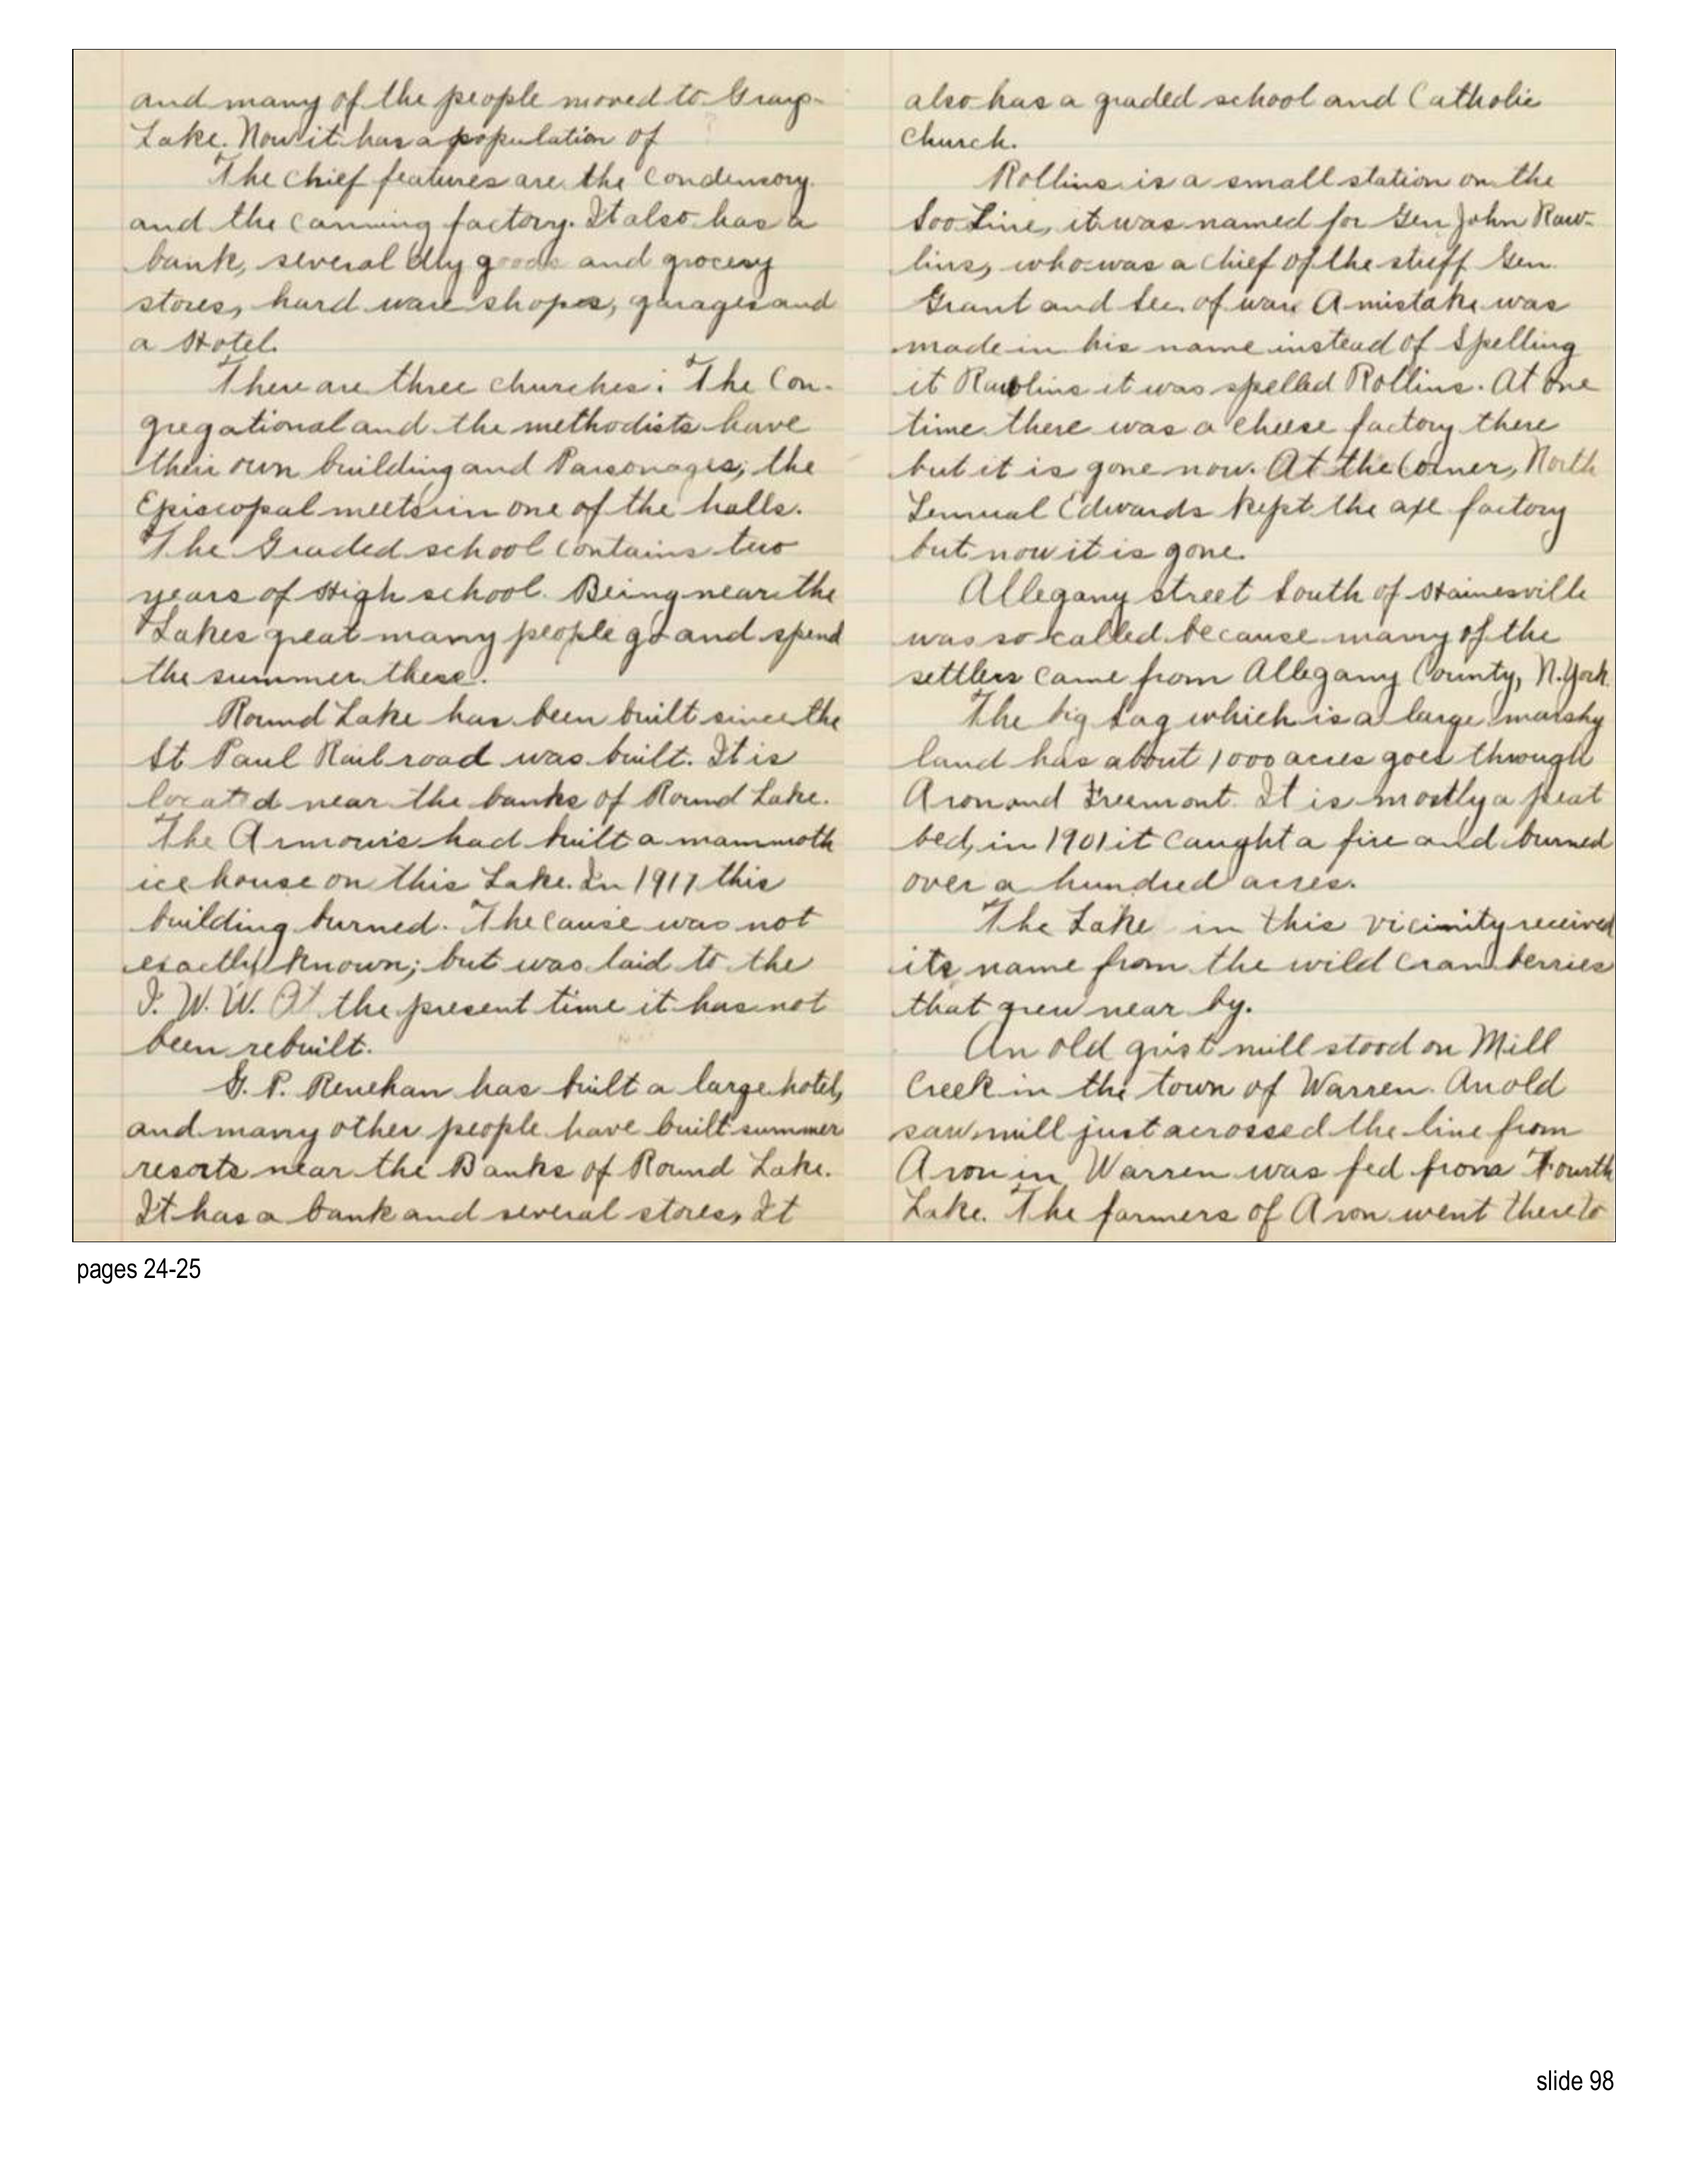 and many of the people moved to Grays-
Lake. Now it has a population of
The chief features are the condensory
and the canning factory. It also has a
bank, several dry goods and grocery
stores, hard ware shopes, garages and
a Hotel.
There are three churches: The Con-
gregational and the methodists have
their own building and Parsonages; the
Episcopal meets in one of the halls.
The Graded school contains two
years of High school. Being near the
Lakes great many people go and spend
the summer there.
Round Lake has been built since the
St Paul Rail road was built. It is
located near the banks of Round Lake.
The Armours had built a mammoth
ice house on this Lake. In 1917 this
building burned. The cause was not
exactly known; but was laid to the
I. W. W. At the present time it has not
been rebuilt.
G. P. Renehan has built a large hotel,
and many other people have built summer
resorts near the Banks of Round Lake.
It has a bank and several stores, It
also has a graded school and Catholic
church.
Rollins is a small station on the
Soo Line, it was named for Gen John Raw-
lins, who was a chief of the stuff Gen.
Grant and Sec. of war. A mistake was
made in his name instead of Spelling
it Rawlins it was spelled Rollins. At one
time there was a cheese factory there
but it is gone now. At the Corner, North
Lemual Edwards kept the axe factory
but now it is gone.
Allegany street South of Hainesville
was so called because many of the
settlers came from Allegany County, N. York.
The big Sag which is a large marshy
land has about 1000 acres goes through
Avon and Freemont. It is mostly a peat
bed, in 1901 it caught a fire and burned
over a hundred acres.
The Lake in this vicinity received
its name from the wild cranberries
that grew near by.
An old grist mill stood on Mill
Creek in the town of Warren. An old
saw mill just acrossed the line from
Avon in Warren was fed from Fourth
Lake. The farmers of Avon went there to
pages 24-25
slide 98